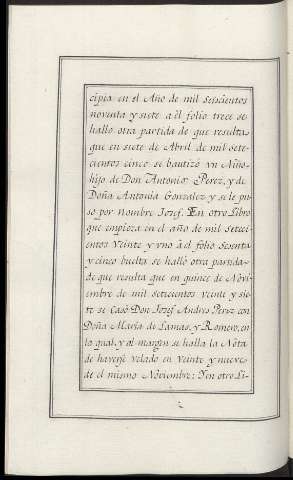 cipia en el Año de mil seiscientos
noventa y siete a el folio trece se
hallo otra partida de que resulta
que en siete de Abril de mil sete-
cientos cinco se bautizó vn Niño
hijo de Don Antonio Perez, y de
Doña Antonia Gonzalez y se le pu
so por nombre Josef. En otro Libro
que empieza en el año de mil seteci
entos Veinte y vno â el folio sesenta
y cinco buelta se halló otra partida
de que resulta que en quince de Novi
embre de mil setecientos veinte y sie
te se Casó Don Josef Andres Perez con
Doña Maria de Lamas, y Romero, en
la qual, y al margen se halla la Nota
de haverse velado en Veinte y nueve
de el mismo Noviembre: Y en otro Li-